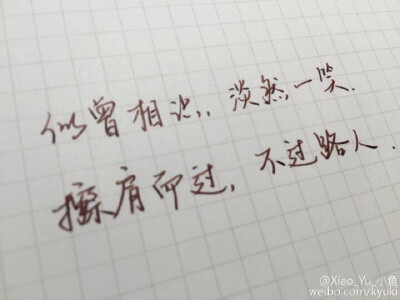 似曾相识,淡然一笑.
擦肩而过,不过路人.
@Xiao_Yu_小鱼
weibo.com/kyuki